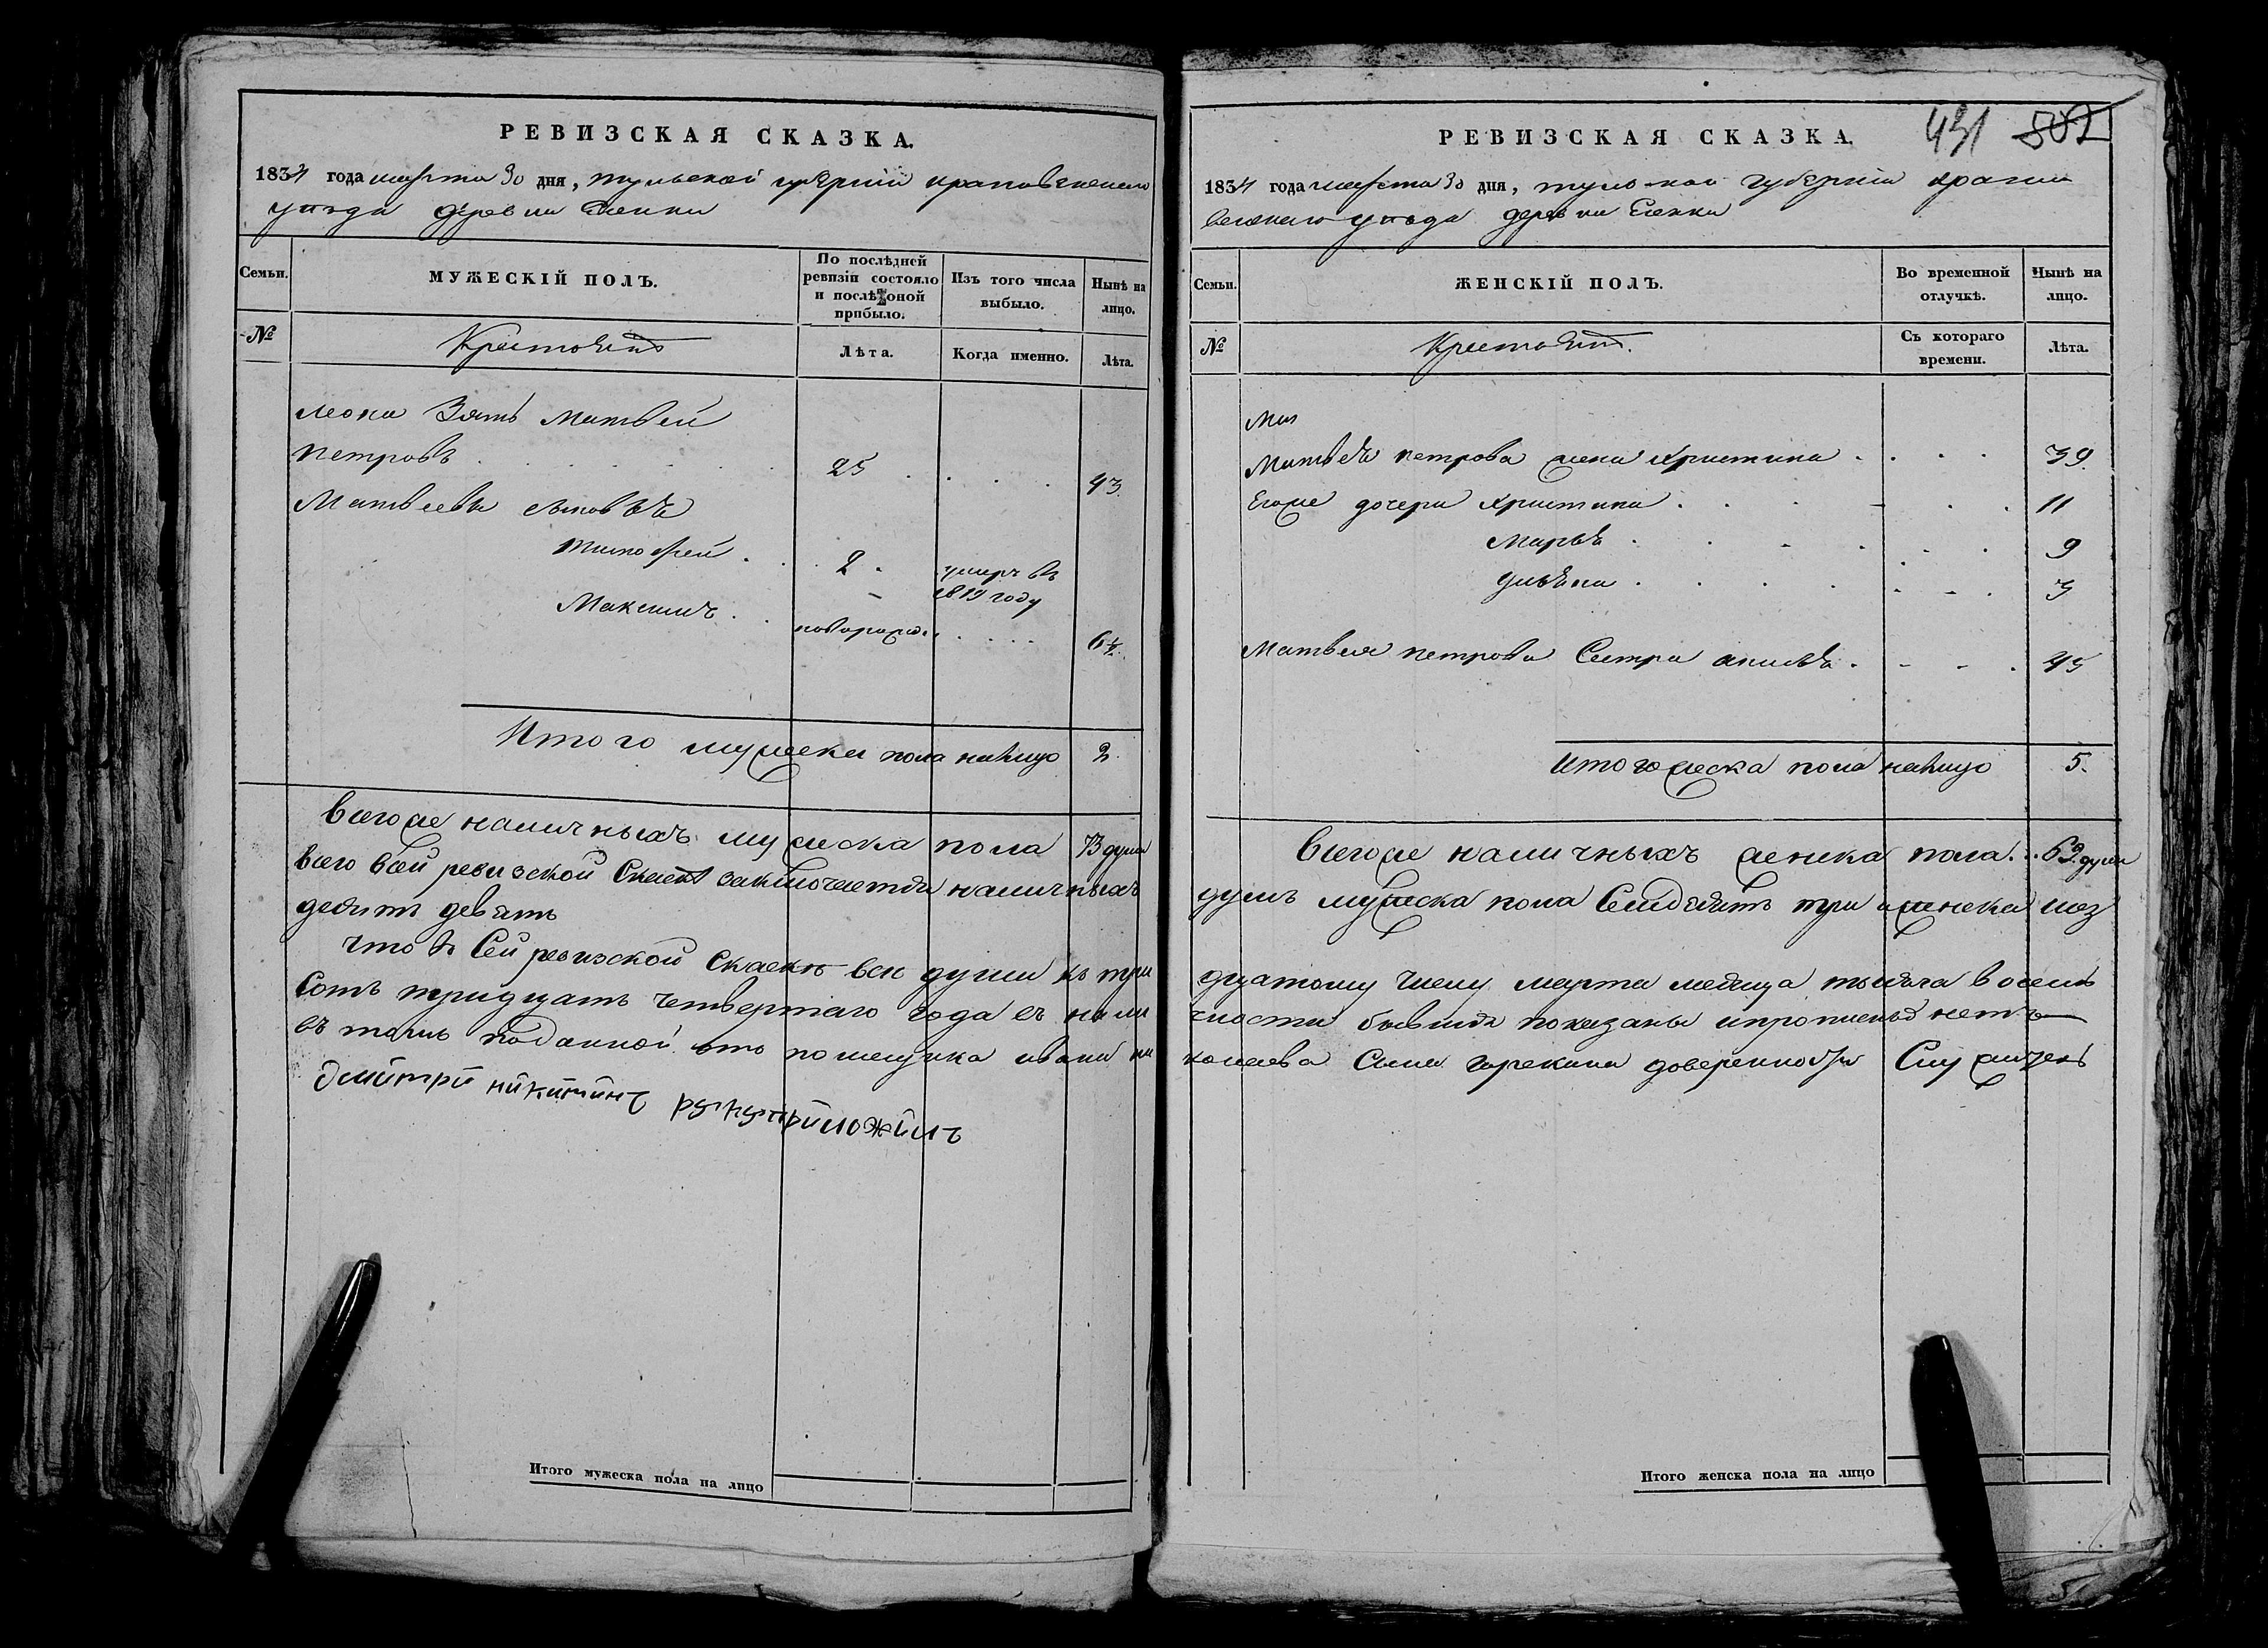 РЕВИЗСКАЯ СКАЗКА.
1834 года марта 30 дня, тульской губерни крапивенскаго
уезда деревни Еленки
Семьи.
МУЖЕСКІЙ ПОЛЪ.
По послѣдней ревизіи состояло и послѣ оной прибыло.
Изъ того числа выбыло.
Нынѣ на лицо.
№
Крестьянъ
Лѣта.
Когда именно.
Лѣта.
зять Матвей
петровъ 25 43
Матвеевы сыновья
тимофей 2 умеръ въ
1819 году
Максимъ новорожд. 6½
Итого мужска пола налицо 2
всегоже наличныхъ мужеска пола 73 души
всего всей ревизской сказки заключается наличныхъ
десятъ девять
что в сей ревизской сказке все души къ три
сотъ тридцать четвертаго года въ нали
въ томъ поданной отъ помещика ивана ни
дмитри никитинъ руку приложилъ
Итого мужеска пола на лицо
РЕВИЗСКАЯ СКАЗКА.
431 502
1834 года марта 30 дня, тульской губернии крапи
венскаго уезда деревни Еленки
Семьи.
ЖЕНСКІЙ ПОЛЪ.
Во временной отлучкѣ.
Нынѣ на лицо.
№
Крестьянъ.
Съ котораго времени.
Лѣта.
Мат
Матвея петрова жена христина 39
Егоже дочери христина 11
Марья 9
ульяна 3
Матвея петрова Сестра акилина 45
итого женска пола налицо 5.
всегоже наличныхъ женска пола 69 души
душъ мужеска пола семдесятъ три и женска шез
дцатому числу марта месяца тысяча восемь
чности бывшия показаны и прописныхъ нетъ
колаева Сына доверенной Служитель
Итого женска пола на лицо